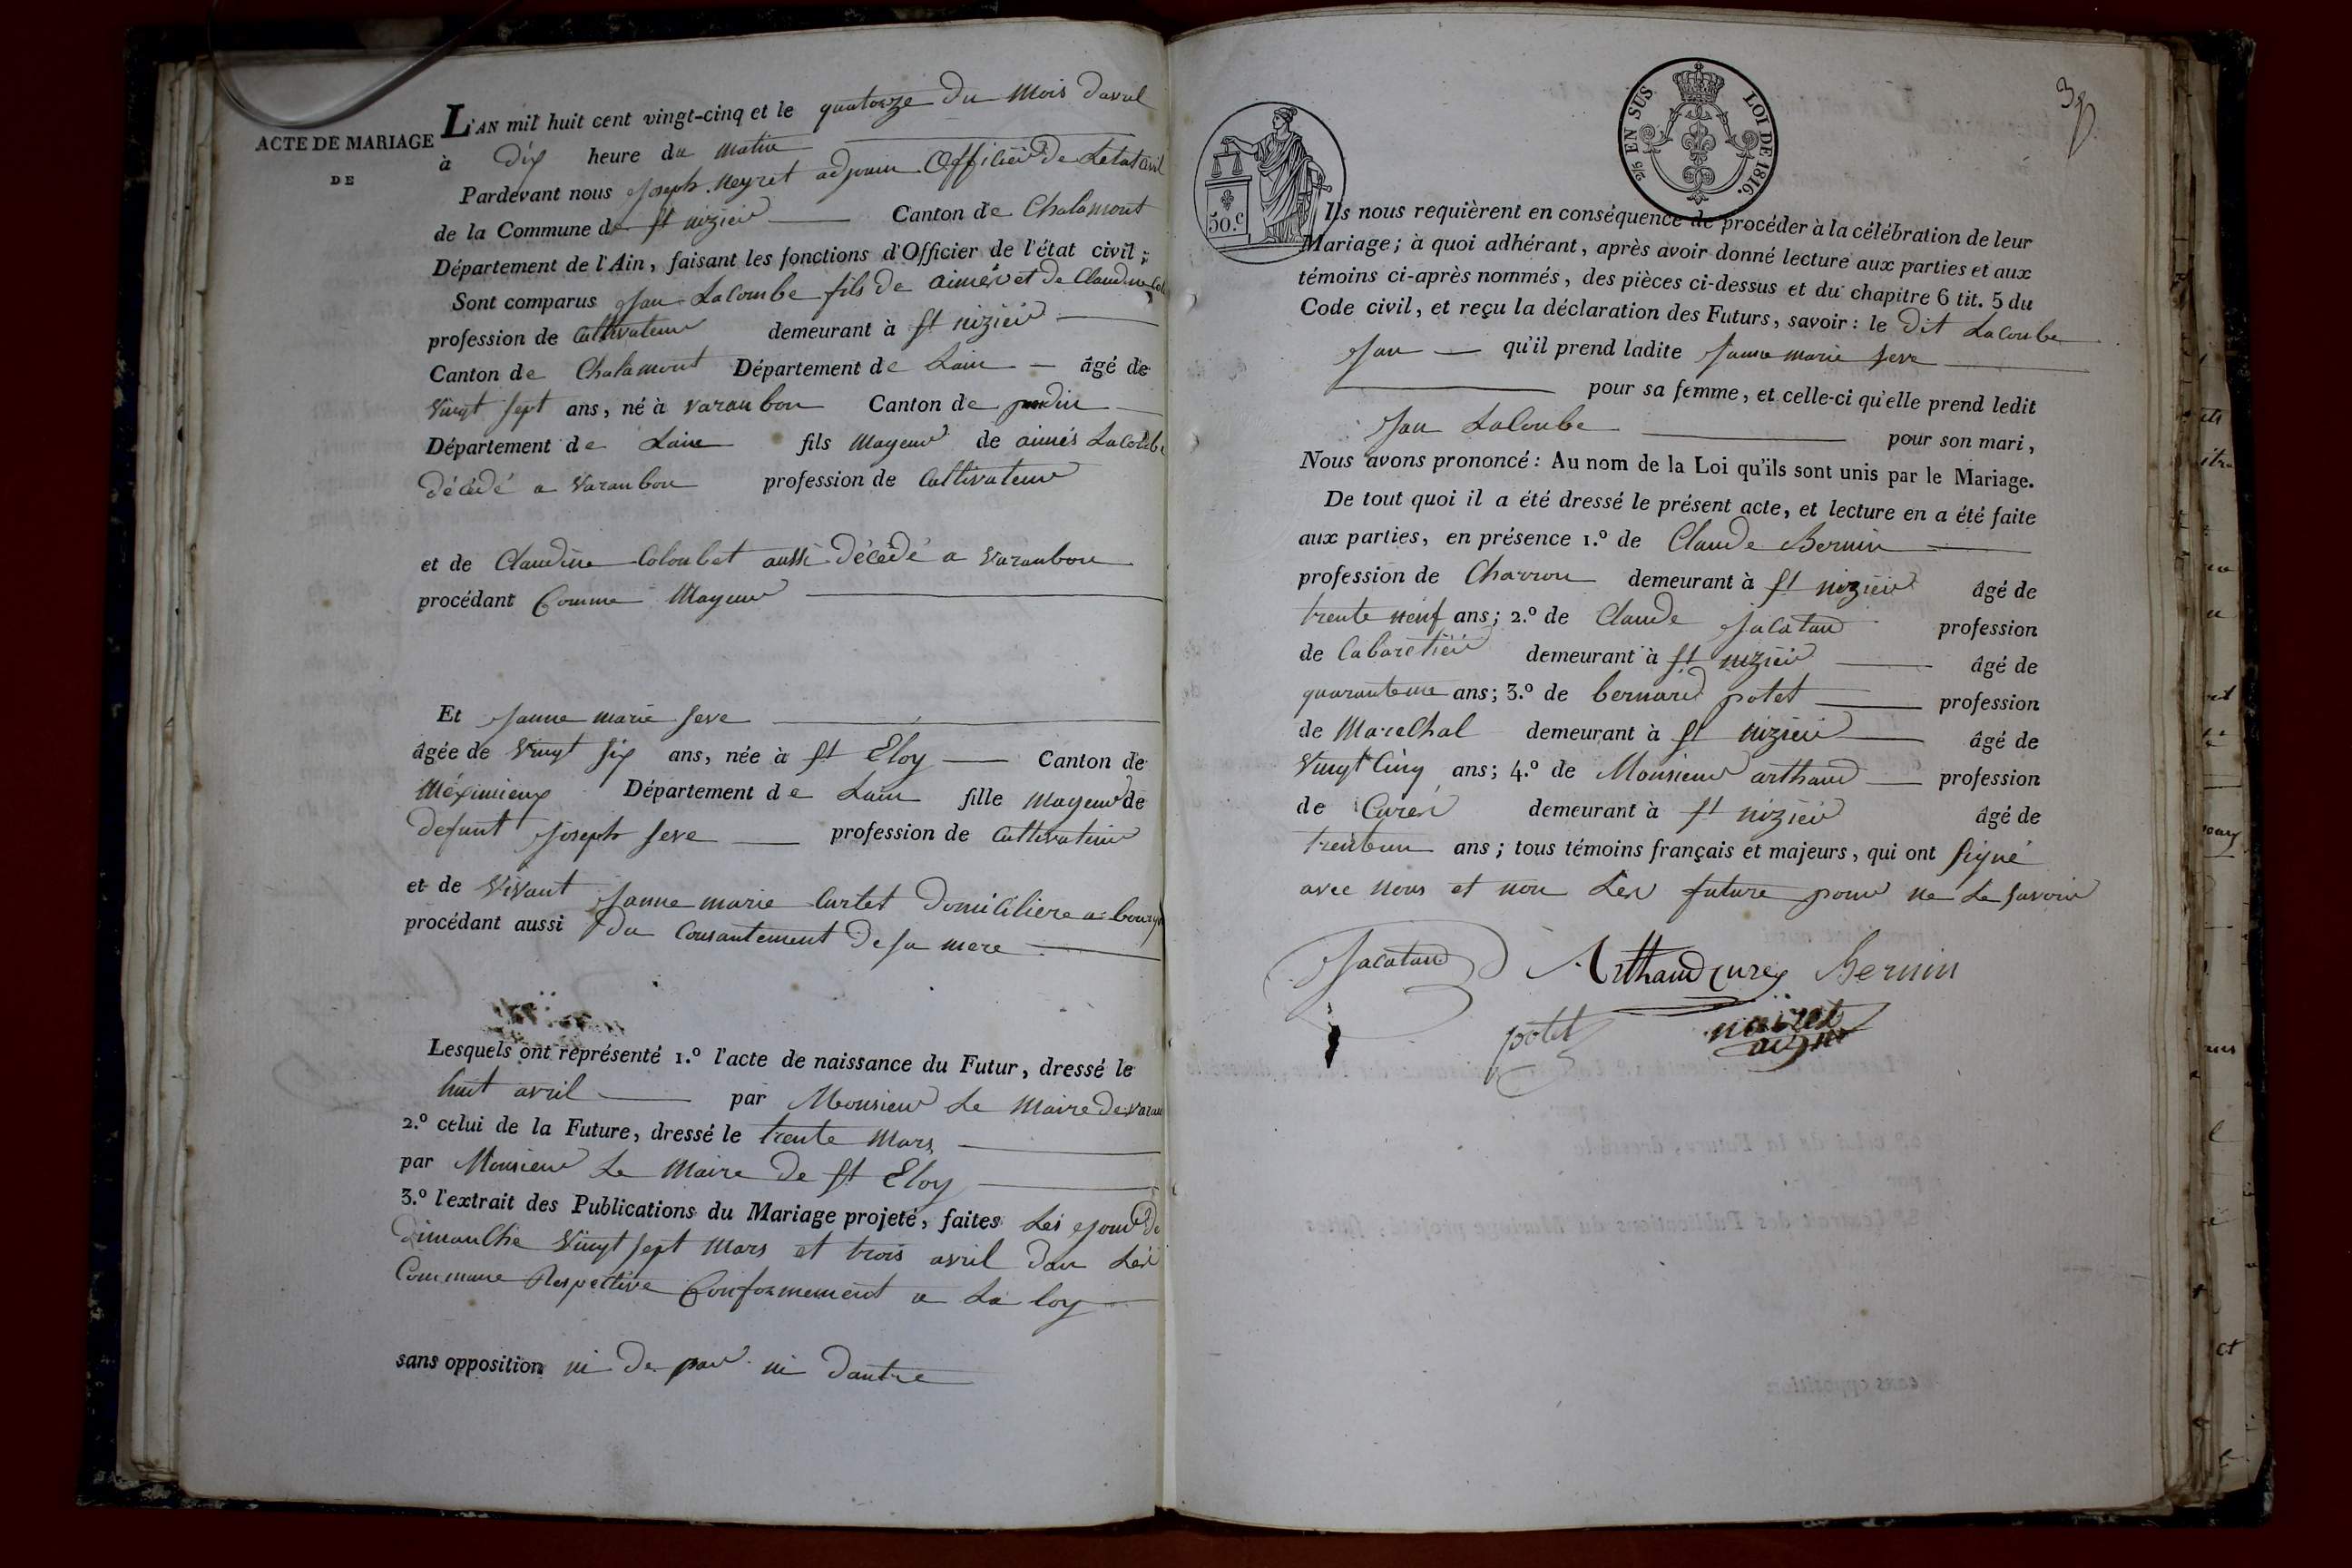 ACTE DE MARIAGE
DE
L'AN mil huit cent vingt-cinq et le quatorze du mois davril
à dix heure du matin
Pardevant nous joseph neyret adjoin officier de Letat civil
de la Commune de st nizier Canton de Chalamont
Département de l'Ain, faisant les fonctions d'Officier de l'état civil;
Sont comparus jan Lacombe fils de aimér et de Claudine
profession de Cultivateur demeurant à st nizier
Canton de Chalamont Département de Lain âgé de
vingt sept ans, né à varanbon Canton de
Département de Lain fils mayeur de aimés Lacombe
décédé a varanbon profession de Cultivateur
et de Claudine Coloubet aussi décédé a varanbon
procédant Comme mayeur
Et janne marie seve
âgée de vingt six ans, née à st Eloy Canton de
méximieux Département de Lain fille mayeur de
defunt joseph seve profession de Cultivateur
et de vivant janne marie Curtet domiciliere a
procédant aussi du Consantement de sa mere
Lesquels ont représenté 1.º l'acte de naissance du Futur, dressé le
huit avril par Monsieur Le maire de varan
2.º celui de la Future, dressé le trente mars
par Monsieur Le maire de st Eloy
3.º l'extrait des Publications du Mariage projeté, faites Les jour de
dimanche vingt sept mars et trois avril dan Les
Commune Respective Conformement a La loy
sans opposition ni de par ni dautre
3
50.C
2/6 EN SUS
LOI DE 1816.
Ils nous requièrent en conséquence de procéder à la célébration de leur
Mariage; à quoi adhérant, après avoir donné lecture aux parties et aux
témoins ci-après nommés, des pièces ci-dessus et du chapitre 6 tit. 5 du
Code civil, et reçu la déclaration des Futurs, savoir: le dit Lacombe
jan qu'il prend ladite janne marie seve
pour sa femme, et celle-ci qu'elle prend ledit
jan Lacoube pour son mari,
Nous avons prononcé: Au nom de la Loi qu'ils sont unis par le Mariage.
De tout quoi il a été dressé le présent acte, et lecture en a été faite
aux parties, en présence 1.º de Claude Bernin
profession de Charron demeurant à st nizier âgé de
trente neuf ans; 2.º de Claude jacatau profession
de Cabaretier demeurant à st nizier âgé de
quarante ans; 3.º de bernard potet profession
de Marechal demeurant à st nizier âgé de
vingt Cinq ans; 4.º de Monsieur arthaud profession
de Curér demeurant à st nizier âgé de
trenteun ans; tous témoins français et majeurs, qui ont signé
avec nous et non Les future pour ne Le savoir
Jacatau Arthaud curé Bernin
potet neiret